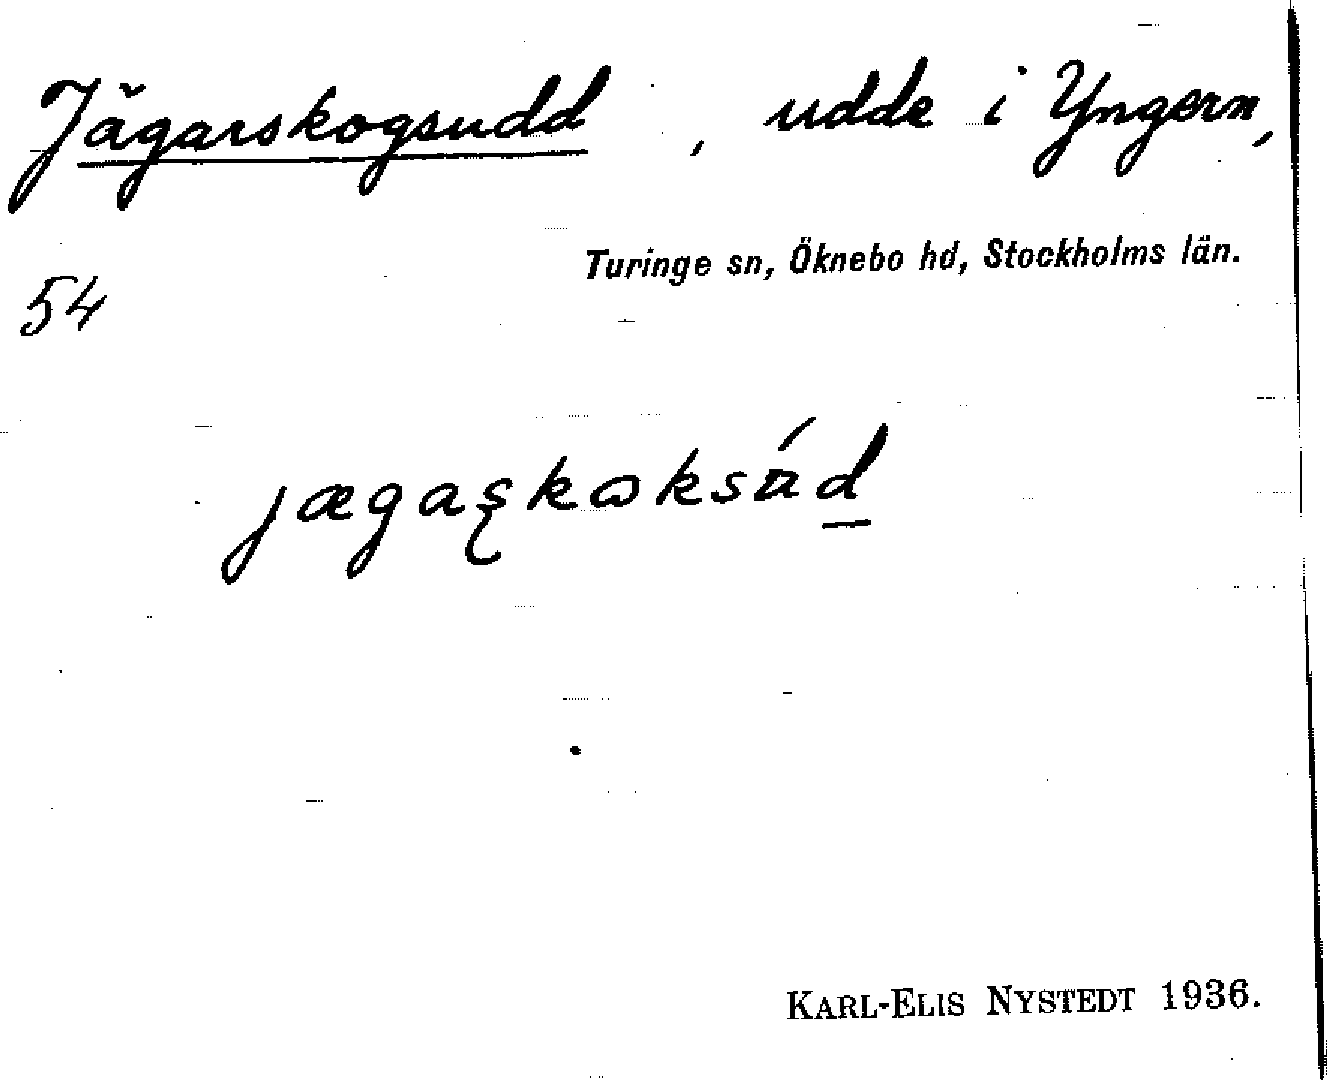 Jägarskogsudd, udde i Yngern,
Turinge sn, Öknebo hd, Stockholms län.
54
jægaʂkɷksúd
KARL-ELIS NYSTEDT 1936.